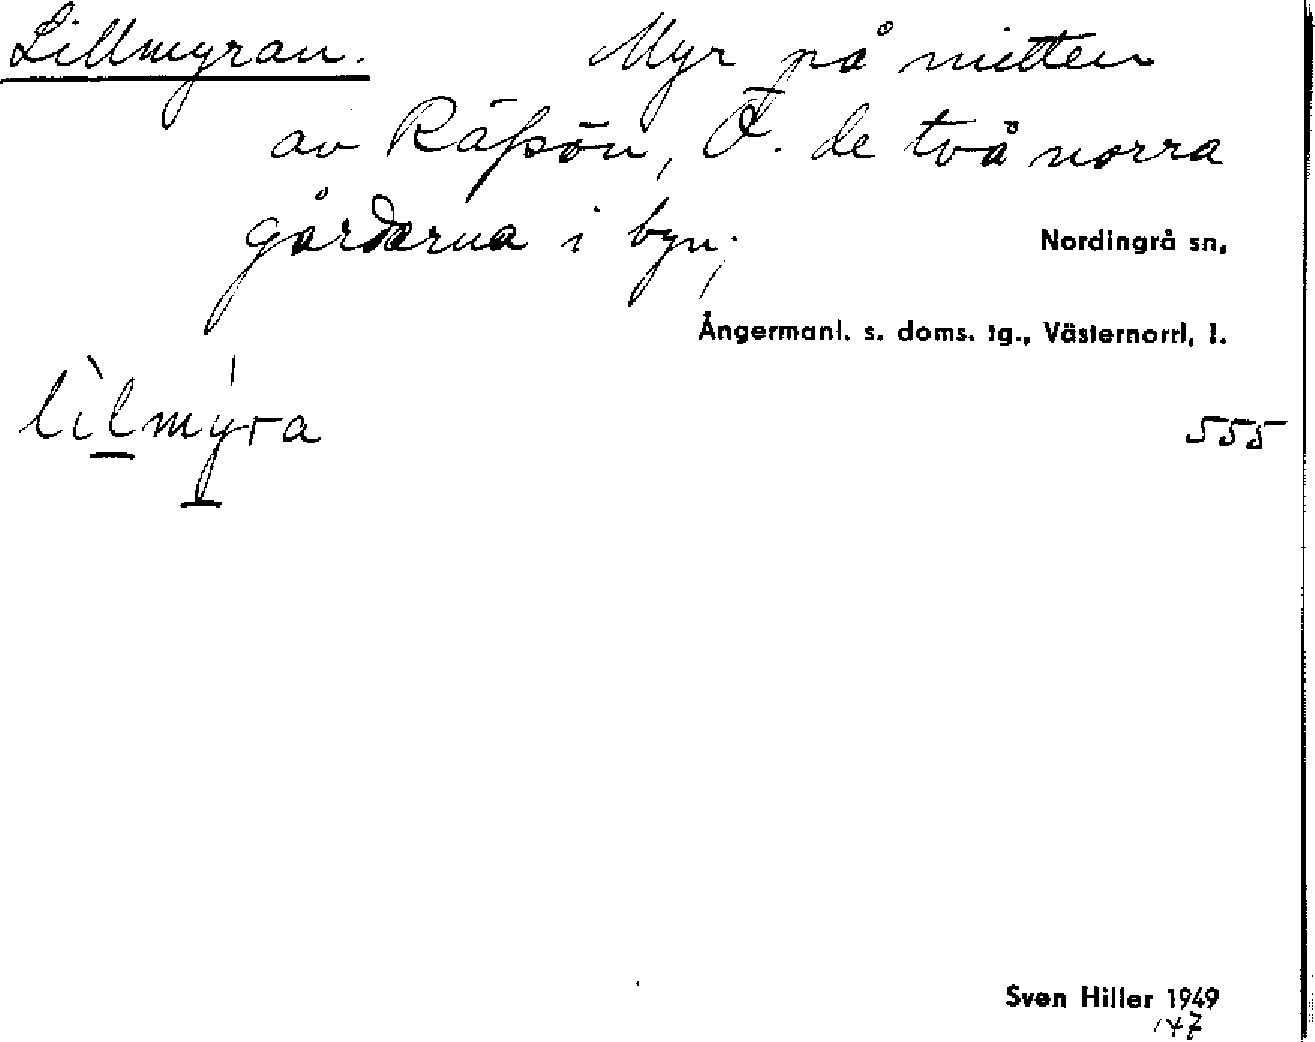 Lillmyran. Myr på mitten
av Räfsön, Ö. de två norra
gårdarna i byn;
Nordingrå sn.
Ångermanl. s. doms. tg., Västernorrl. l.
lìlmy̍ra
555
Sven Hiller 1949
147